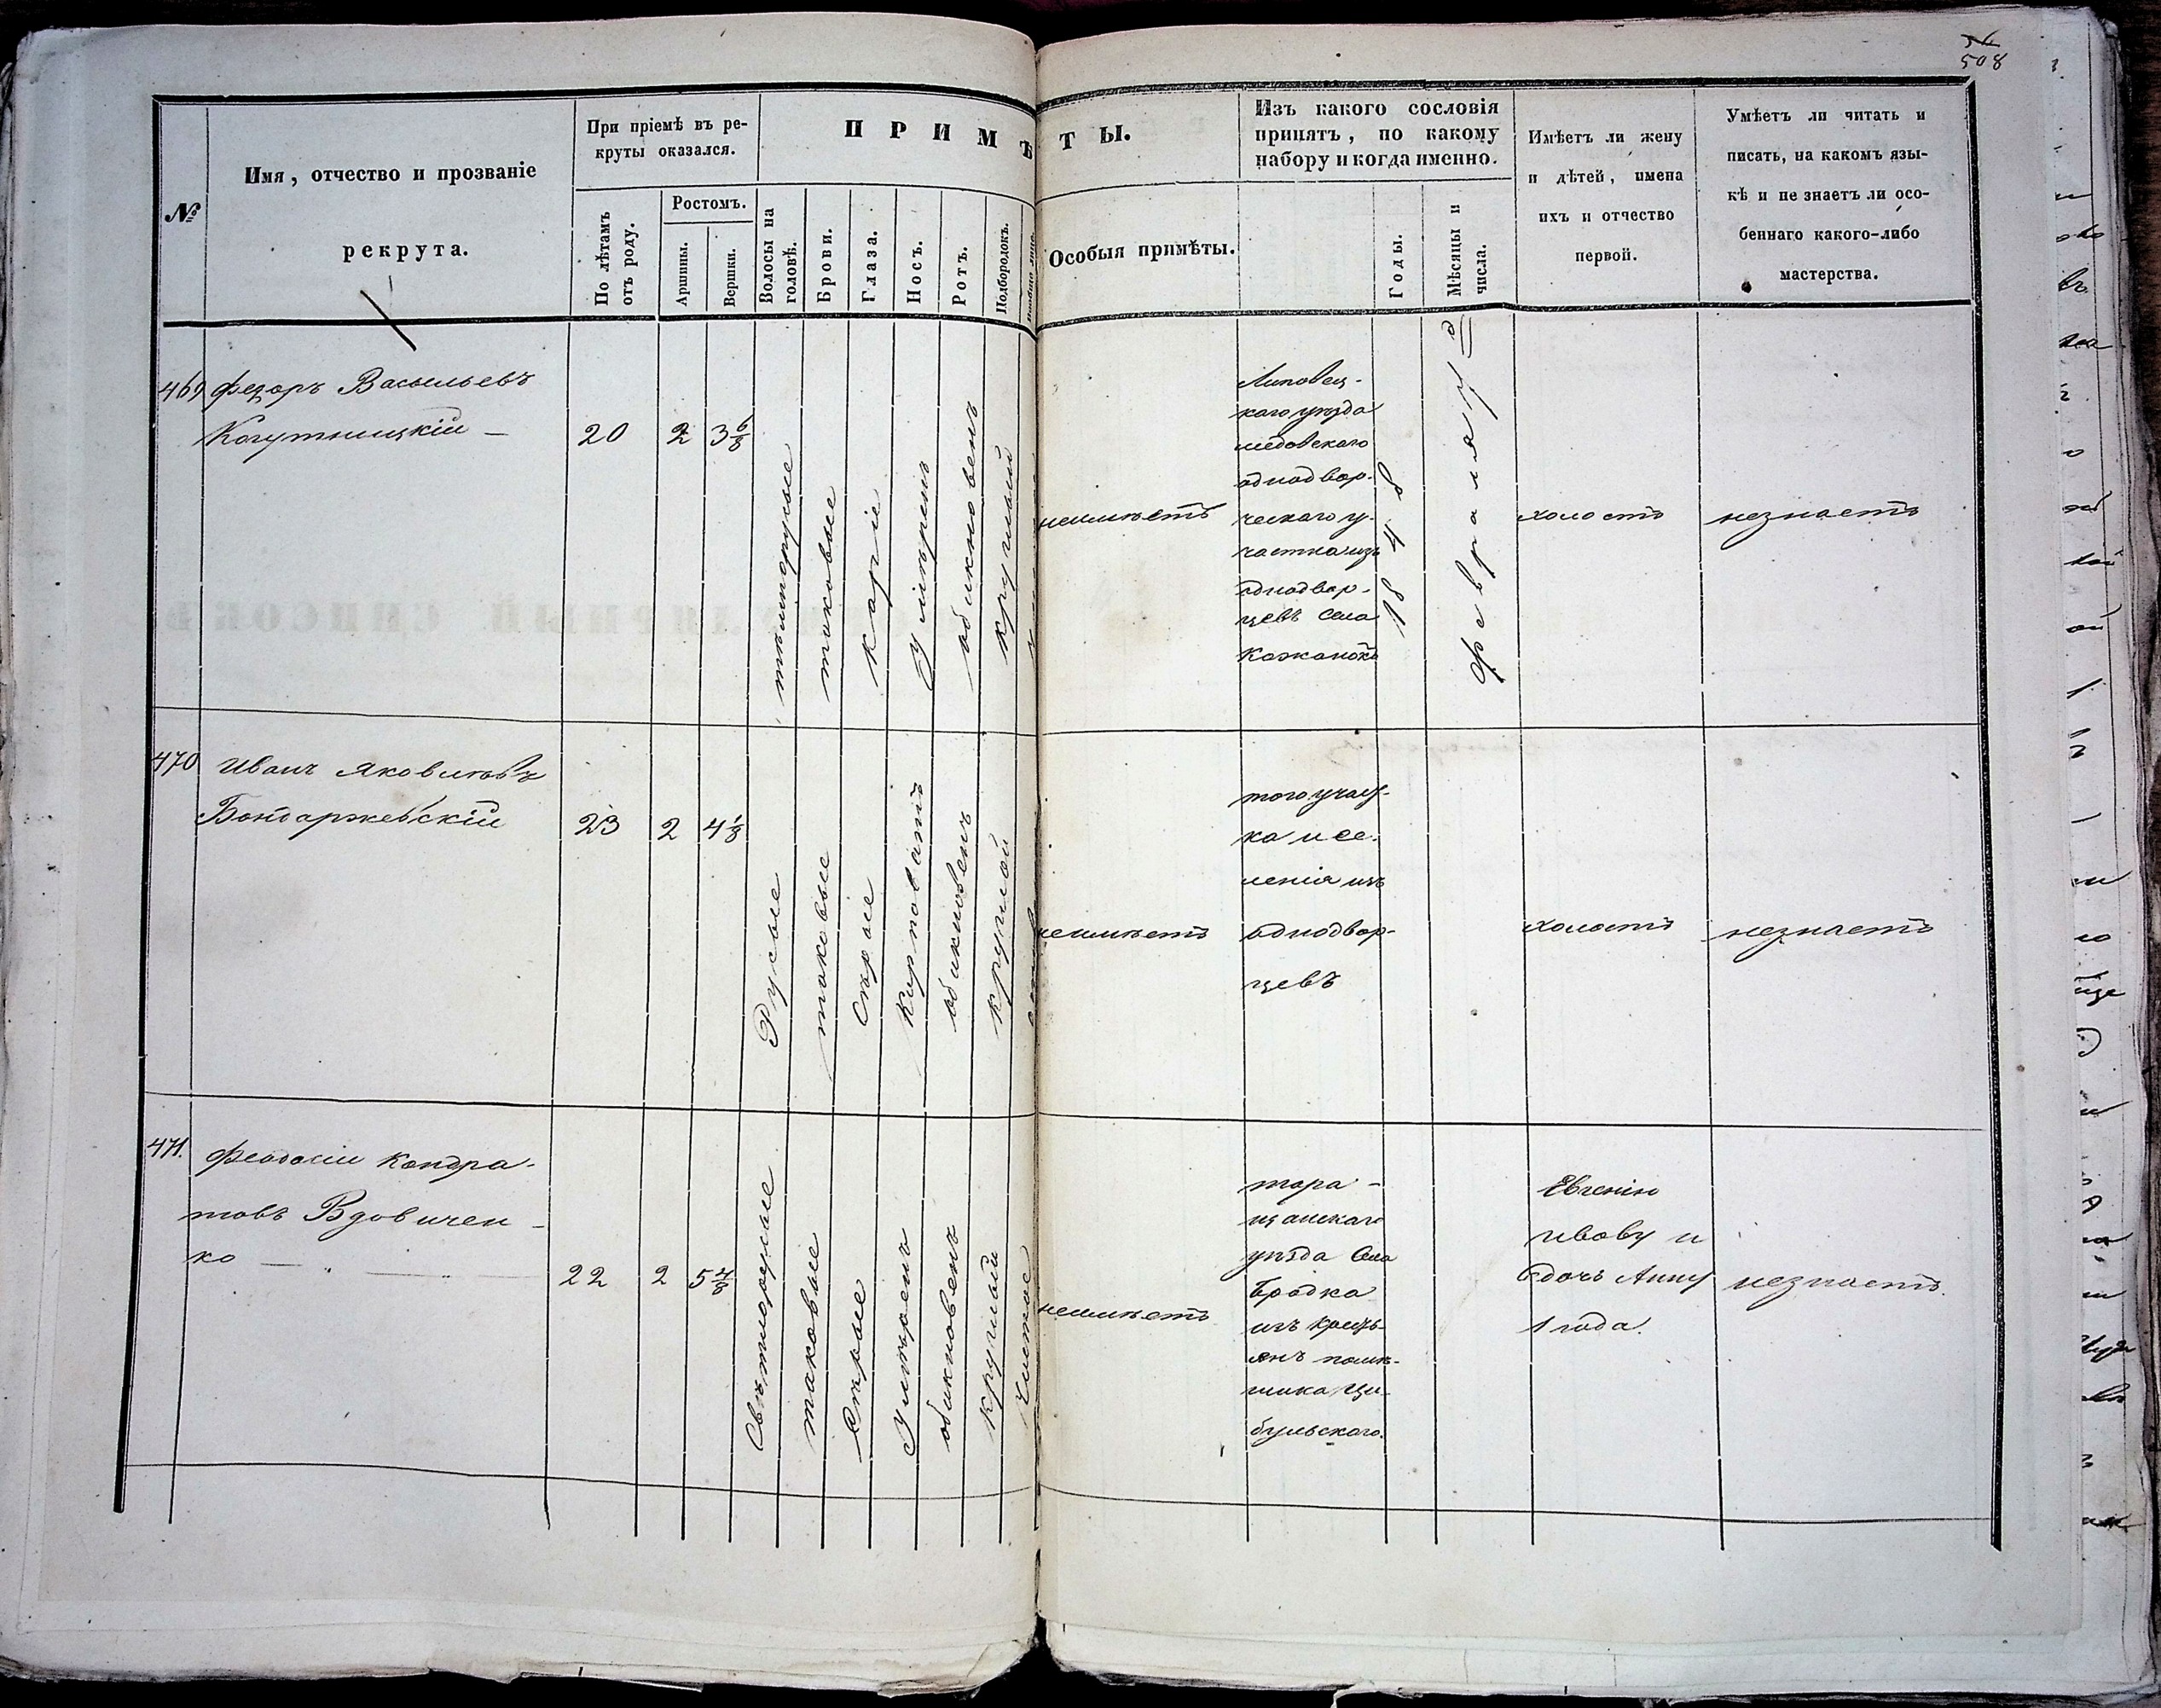 508
№
Имя, отчество и прозваніе
рекрута.
При пріемѣ въ ре-
круты оказался.
По лѣтамъ
отъ роду.
Ростомъ.
Аршины.
Вершки.
ПРИМѢТЫ.
Волосы на
головѣ.
Брови.
Глаза.
Носъ.
Ротъ.
Подбородокъ.
Особыя примѣты.
Изъ какого сословія
принятъ, по какому
набору и когда именно.
Годы.
Мѣсяцы и
числа.
Имѣетъ ли жену
и дѣтей, имена
ихъ и отчество
первой.
Умѣетъ ли читать и
писать, на какомъ язы-
кѣ и не знаетъ ли осо-
беннаго какого-либо
мастерства.
469
Федоръ Васильевъ
Когутницкій
20
2
3 6/8
темнорусые
таковые
Каріе
Умѣренъ
обикновенъ
круглый
неимѣетъ
Липовец-
каго уѣзда
однодвор-
ческаго у-
частка изъ
однодвор-
цевъ села
Кожанокъ
1848
Февраля
холостъ
незнаетъ
470
Иванъ Яковлевъ
Бондаржевскій
23
2
4 1/8
Русые
таковые
Сѣрые
Кирповатъ
обикновенъ
круглой
неимѣетъ
того учас-
ка и се-
ленія изъ
однодвор-
цевъ
холостъ
незнаетъ
471.
Феодосій Кондра-
товъ Вдовичен-
ко
22
2
5 4/8
Свѣтлорусые
таковые
Сѣрые
Умѣренъ
обикновенъ
круглой
Чистое
неимѣетъ
тара-
щанскаго
уѣзда села
Бродка
изъ кресть-
янъ помѣ-
щика Ци-
бульскаго.
Евгенію
дочь Анну
1 года.
незнаетъ.